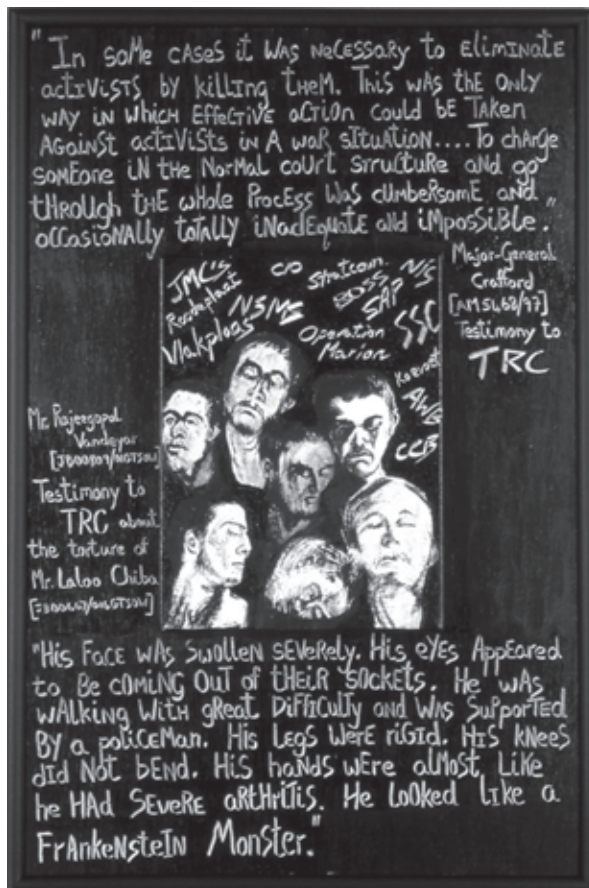 "In some cases it was necessary to eliminate
activists by killing them. This was the only
way in which effective action could be taken
against activists in a war situation....To charge
someone in the normal court structure and go
through the whole process was cumbersome and
occasionally totally inadequate and impossible."
Major-General
Crafford
[AM5468/97]
Testimony to
TRC
JMC's
Stratcom
NIS
Roodeplaat
NSMS
BOSS
SAP
SSC
Vlakplaas
Operation
Marion
Koevoet
AWB
CCB
Mr. Rajeegopal
Vandeyar
Testimony to
TRC about
the torture of
Mr. Laloo Chiba
"His face was swollen severely. His eyes appeared
to be coming out of their sockets. He was
walking with great difficulty and was supported
by a policeman. His legs were rigid. His knees
did not bend. His hands were almost like
he had severe arthritis. He looked like a
Frankenstein Monster."